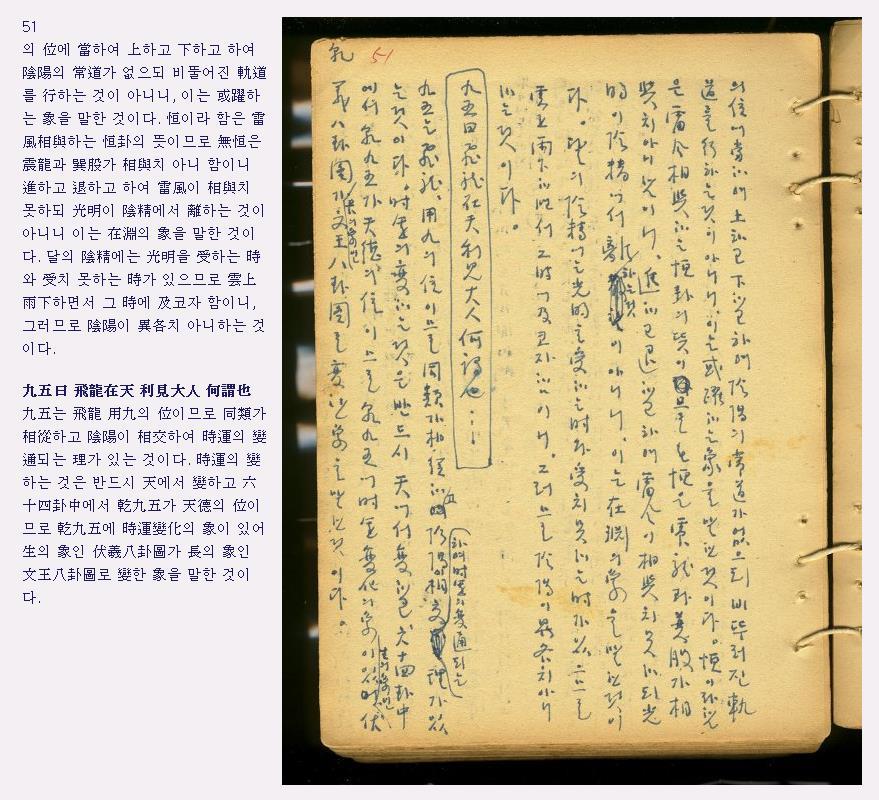 51
의 位에 當하여 上하고 下하고 하여
陰陽의 常道가 없으되 비뚤어진 軌道
를 行하는 것이 아니니, 이는 或躍하
는 象을 말한 것이다. 恒이라 함은 雷
風相與하는 恒卦의 뜻이므로 無恒은
震龍과 巽股가 相與치 아니 함이니
進하고 退하고 하여 雷風이 相與치
못하되 光明이 陰精에서 離하는 것이
아니니 이는 在淵의 象을 말한 것이
다. 달의 陰精에는 光明을 受하는 時
와 受치 못하는 時가 있으므로 雲上
雨下하면서 그 時에 及코자 함이니,
그러므로 陰陽이 異各치 아니하는 것
이다.
九五曰 飛龍在天 利見大人 何謂也
九五는 飛龍 用九의 位이므로 同類가
相從하고 陰陽이 相交하여 時運의 變
通되는 理가 있는 것이다. 時運의 變
하는 것은 반드시 天에서 變하고 六
十四卦中에서 乾九五가 天德의 位이
므로 乾九五에 時運變化의 象이 있어
生의 象인 伏羲八卦圖가 長의 象인
文王八卦圖로 變한 象을 말한 것이
다.
乾 51
의 位에 當하여 上하고 下하고 하여 陰陽의 常道가 없으되 비뚜러진 軌
道를 行하는 것이 아니니, 이는 或躍하는 象을 말한 것이다. 恒이라 함
은 雷風相與하는 恒卦의 뜻이므로 無恒은 震龍과 巽股가 相
與치 아니함이니, 進하고 退하고 하여 雷風이 相與치 못하되 光
明이 陰精에서 離하는 것이 아니니, 이는 在淵의 象을 말한 것이
다. 달의 陰精에는 光明을 受하는 時와 受치 못하는 時가 있으므로
雲上雨下하면서 그 時에 及코자 함이니, 그러므로 陰陽이 異各치 아니
하는 것이다.
九五曰 飛龍在天 利見大人 何謂也
九五는 飛龍, 用九의 位이므로 同類가 相從하고 陰陽이 相交하여 時運의 變通되는 理가 있
는 것이다. 時運의 變하는 것은 반드시 天에서 變하고 六十四卦中
에서 乾九五가 天德의 位이므로 乾九五에 時運變化의 象이 있어 生의 象인 伏
羲八卦圖가 長의 象인 文王八卦圖로 變한 象을 말한 것이다.